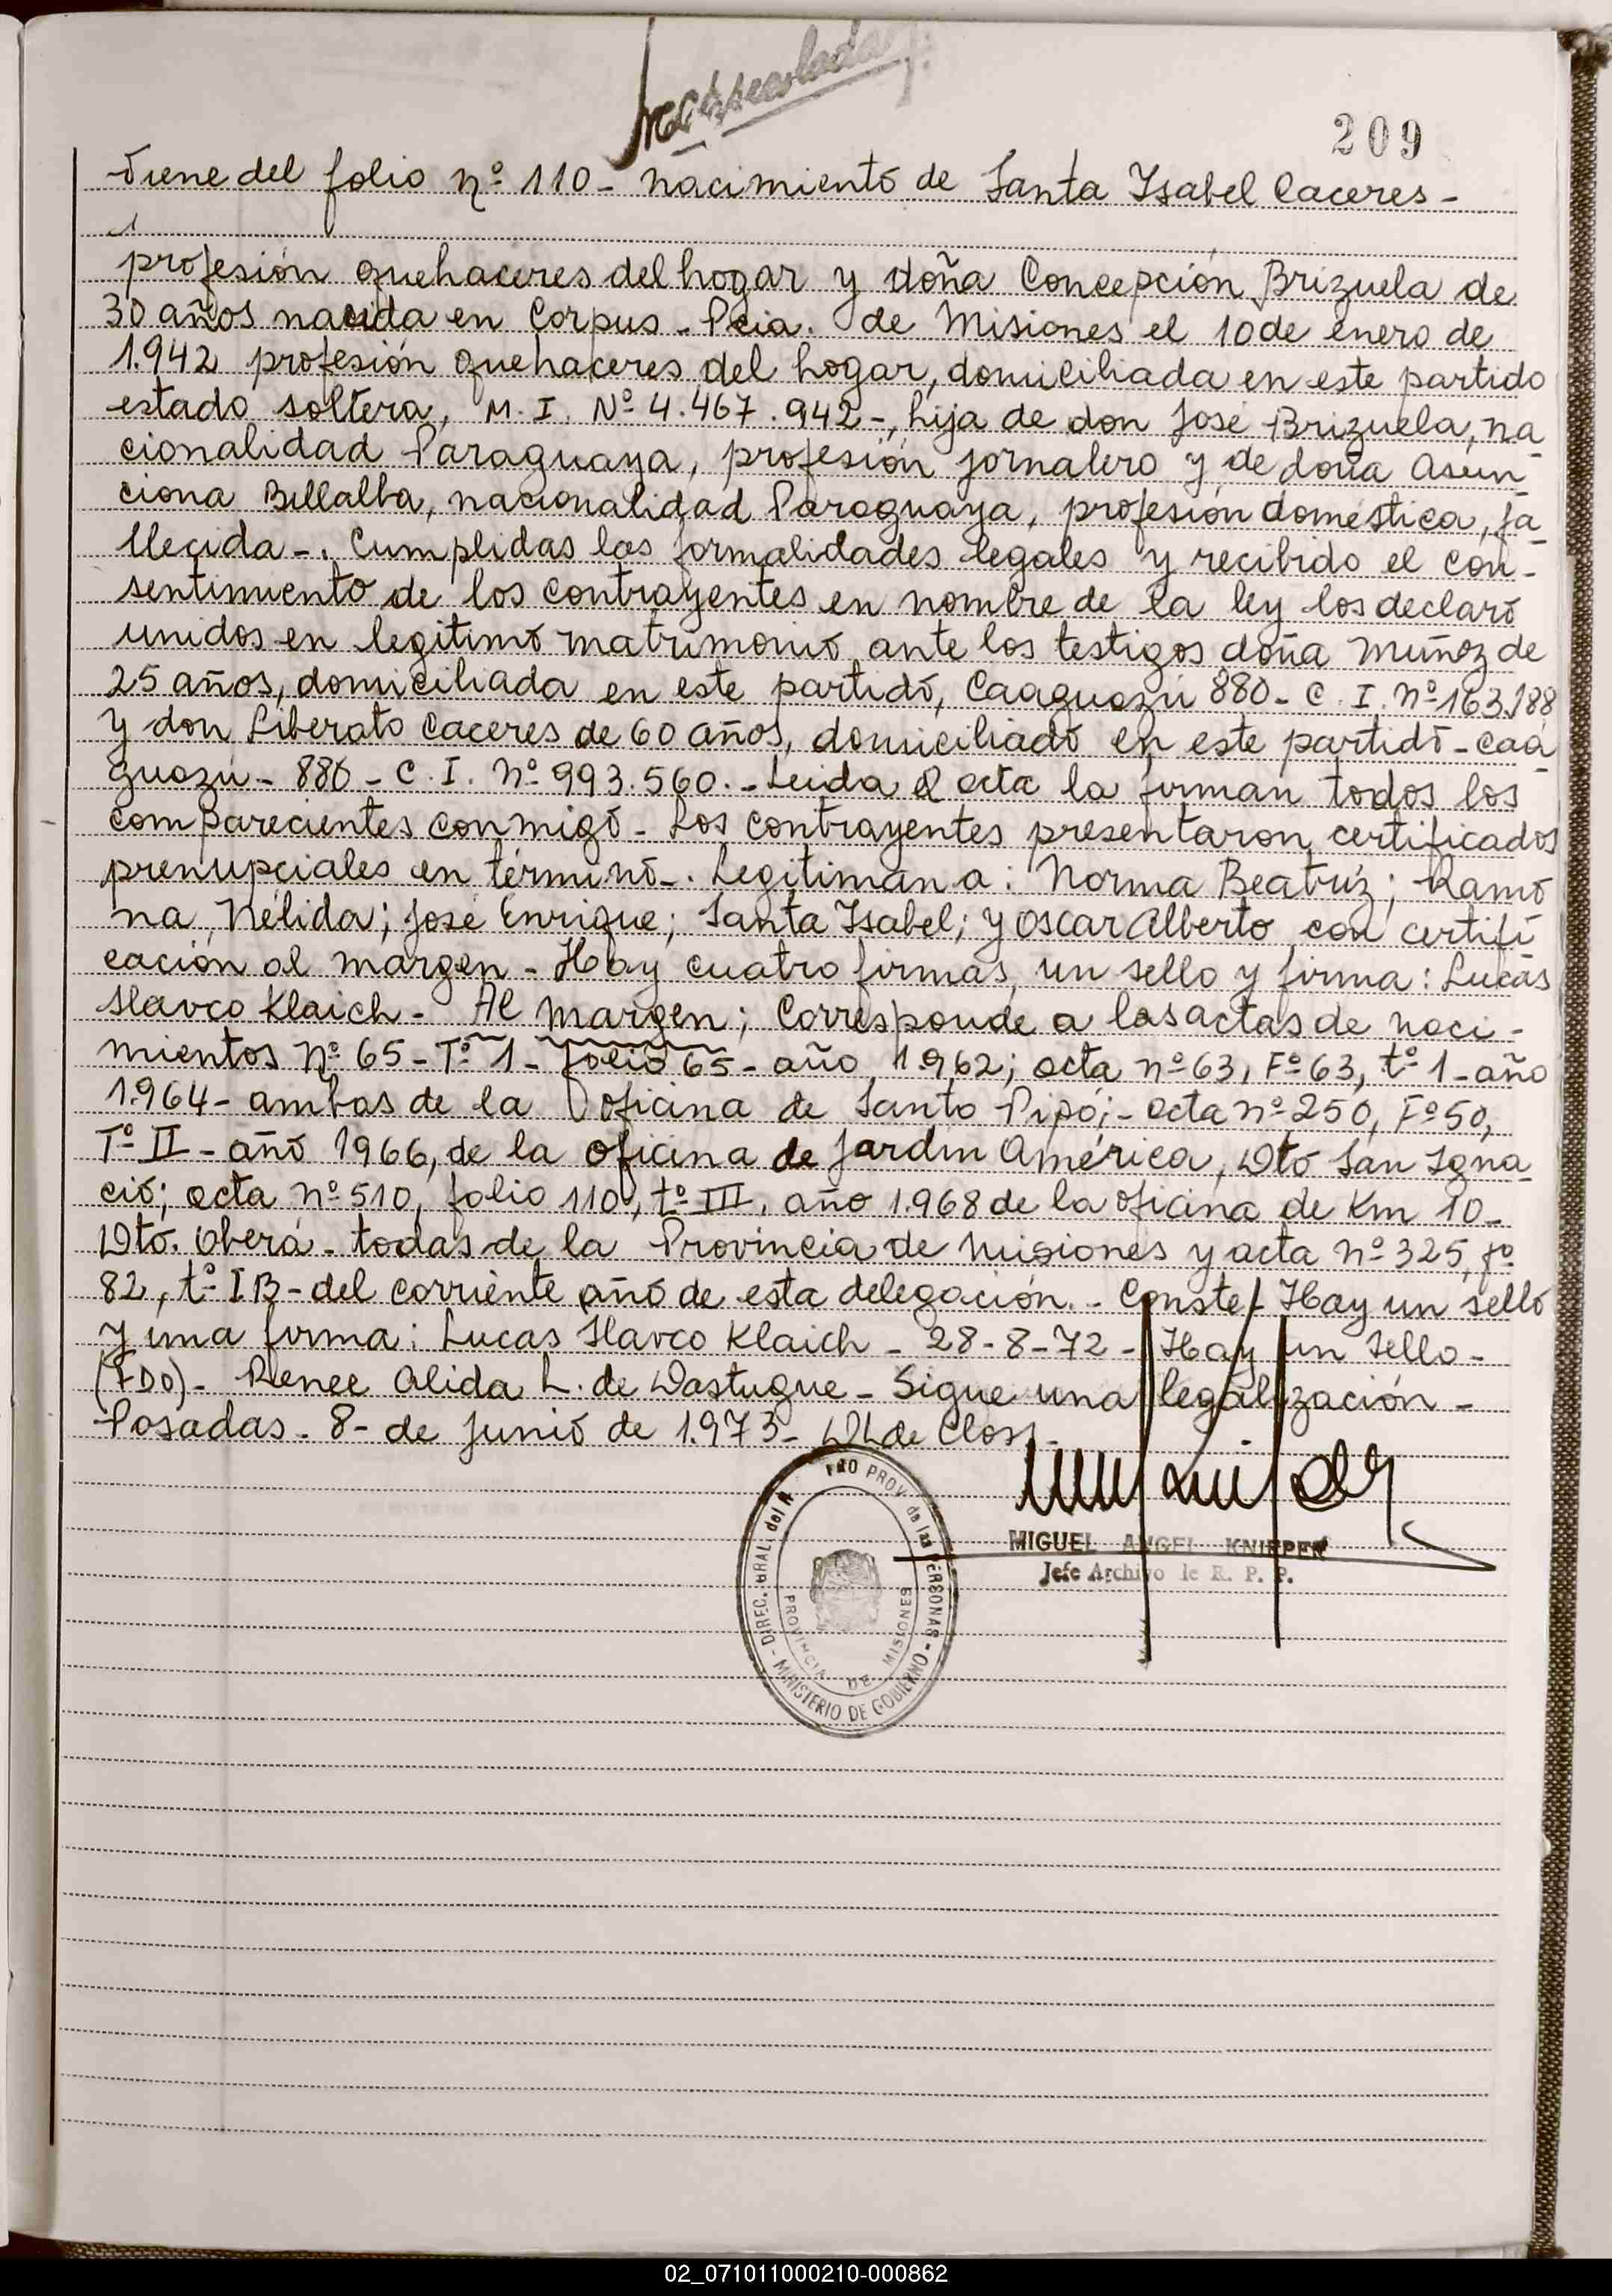 209
Viene del folio nº 110 - nacimiento de Santa Isabel Caceres -
profesión quehaceres del hogar y doña Concepción Brizuela de
30 años nacida en Corpus - Pcia. de Misiones el 10 de enero de
1.942 profesión quehaceres del hogar, domiciliada en este partido
estado soltera, M. I. Nº 4.467.942 -, hija de don José Brizuela, na
cionalidad Paraguaya, profesión jornalero y de doña Asun
ciona Billalba, nacionalidad Paraguaya, profesión doméstica, fa
llecida -. Cumplidas las formalidades legales y recibido el con-
sentimiento de los contrayentes en nombre de la ley los declaró
unidos en legitimo matrimonio ante los testigos doña Muñoz de
25 años, domiciliada en este partido, Caaguazú 880 - C. I. nº 163.188
y don Liberato Caceres de 60 años, domiciliado en este partido - Caa
guazú - 880 - C. I. nº 993.560. - Leida el acta la firman todos los
comparecientes conmigo - Los contrayentes presentaron certificados
prenupciales en término -. Legitiman a: Norma Beatriz; Ramo
na, Nélida; José Enrique; Santa Isabel; y Oscar Alberto con certifi
cación al margen - Hay cuatro firmas, un sello y firma: Lucas
Slavco Klaich - Al margen; Corresponde a las actas de naci-
mientos nº 65 - Tº 1 - folio 65 - año 1.962; acta nº 63, Fº 63, tº 1 - año
1.964 - ambas de la oficina de Santo Pipó; - acta nº 250, Fº 50,
Tº II - año 1966, de la oficina de Jardin América, Dto San Igna
cio; acta nº 510, folio 110, tº III, año 1.968 de la oficina de Km 10 -
Dto. Oberá - todas de la Provincia de Misiones y acta nº 325, fº
82, tº I B - del corriente año de esta delegación. - Conste - Hay un sello
y una firma: Lucas Slavco Klaich - 28-8-72 - Hay un sello -
(FDO) - Renee Alida L. de Dastugue - Sigue una legalización -
Posadas - 8 - de Junio de 1.973 - DL de Closs -
MIGUEL ANGEL KNIEPER
Jefe Archivo de R. P. P.
DIREC. GRAL. del PROV de las PERSONAS - MINISTERIO DE GOBIERNO -
PROVINCIA DE MISIONES
02_071011000210-000862